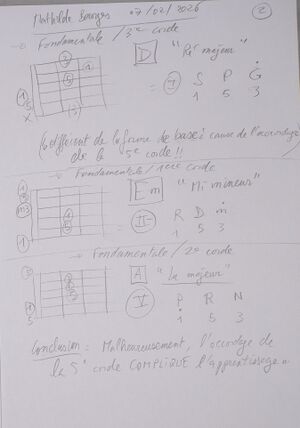 Mathilde Bourges 07/02/2026 2
→ Fondamentale / 3ème corde
D "Ré majeur"
= I S P G
1 5 3
(différent de la forme de base à cause de l'accordage
de la 5e corde !!
→ Fondamentale / 1ère corde
Em "Mi mineur"
= II R D m
1 5 3
→ Fondamentale / 2e corde
A "La majeur"
V P R N
1 5 3
Conclusion : Malheureusement, l'accordage de
la 5e corde COMPLIQUE l'apprentissage